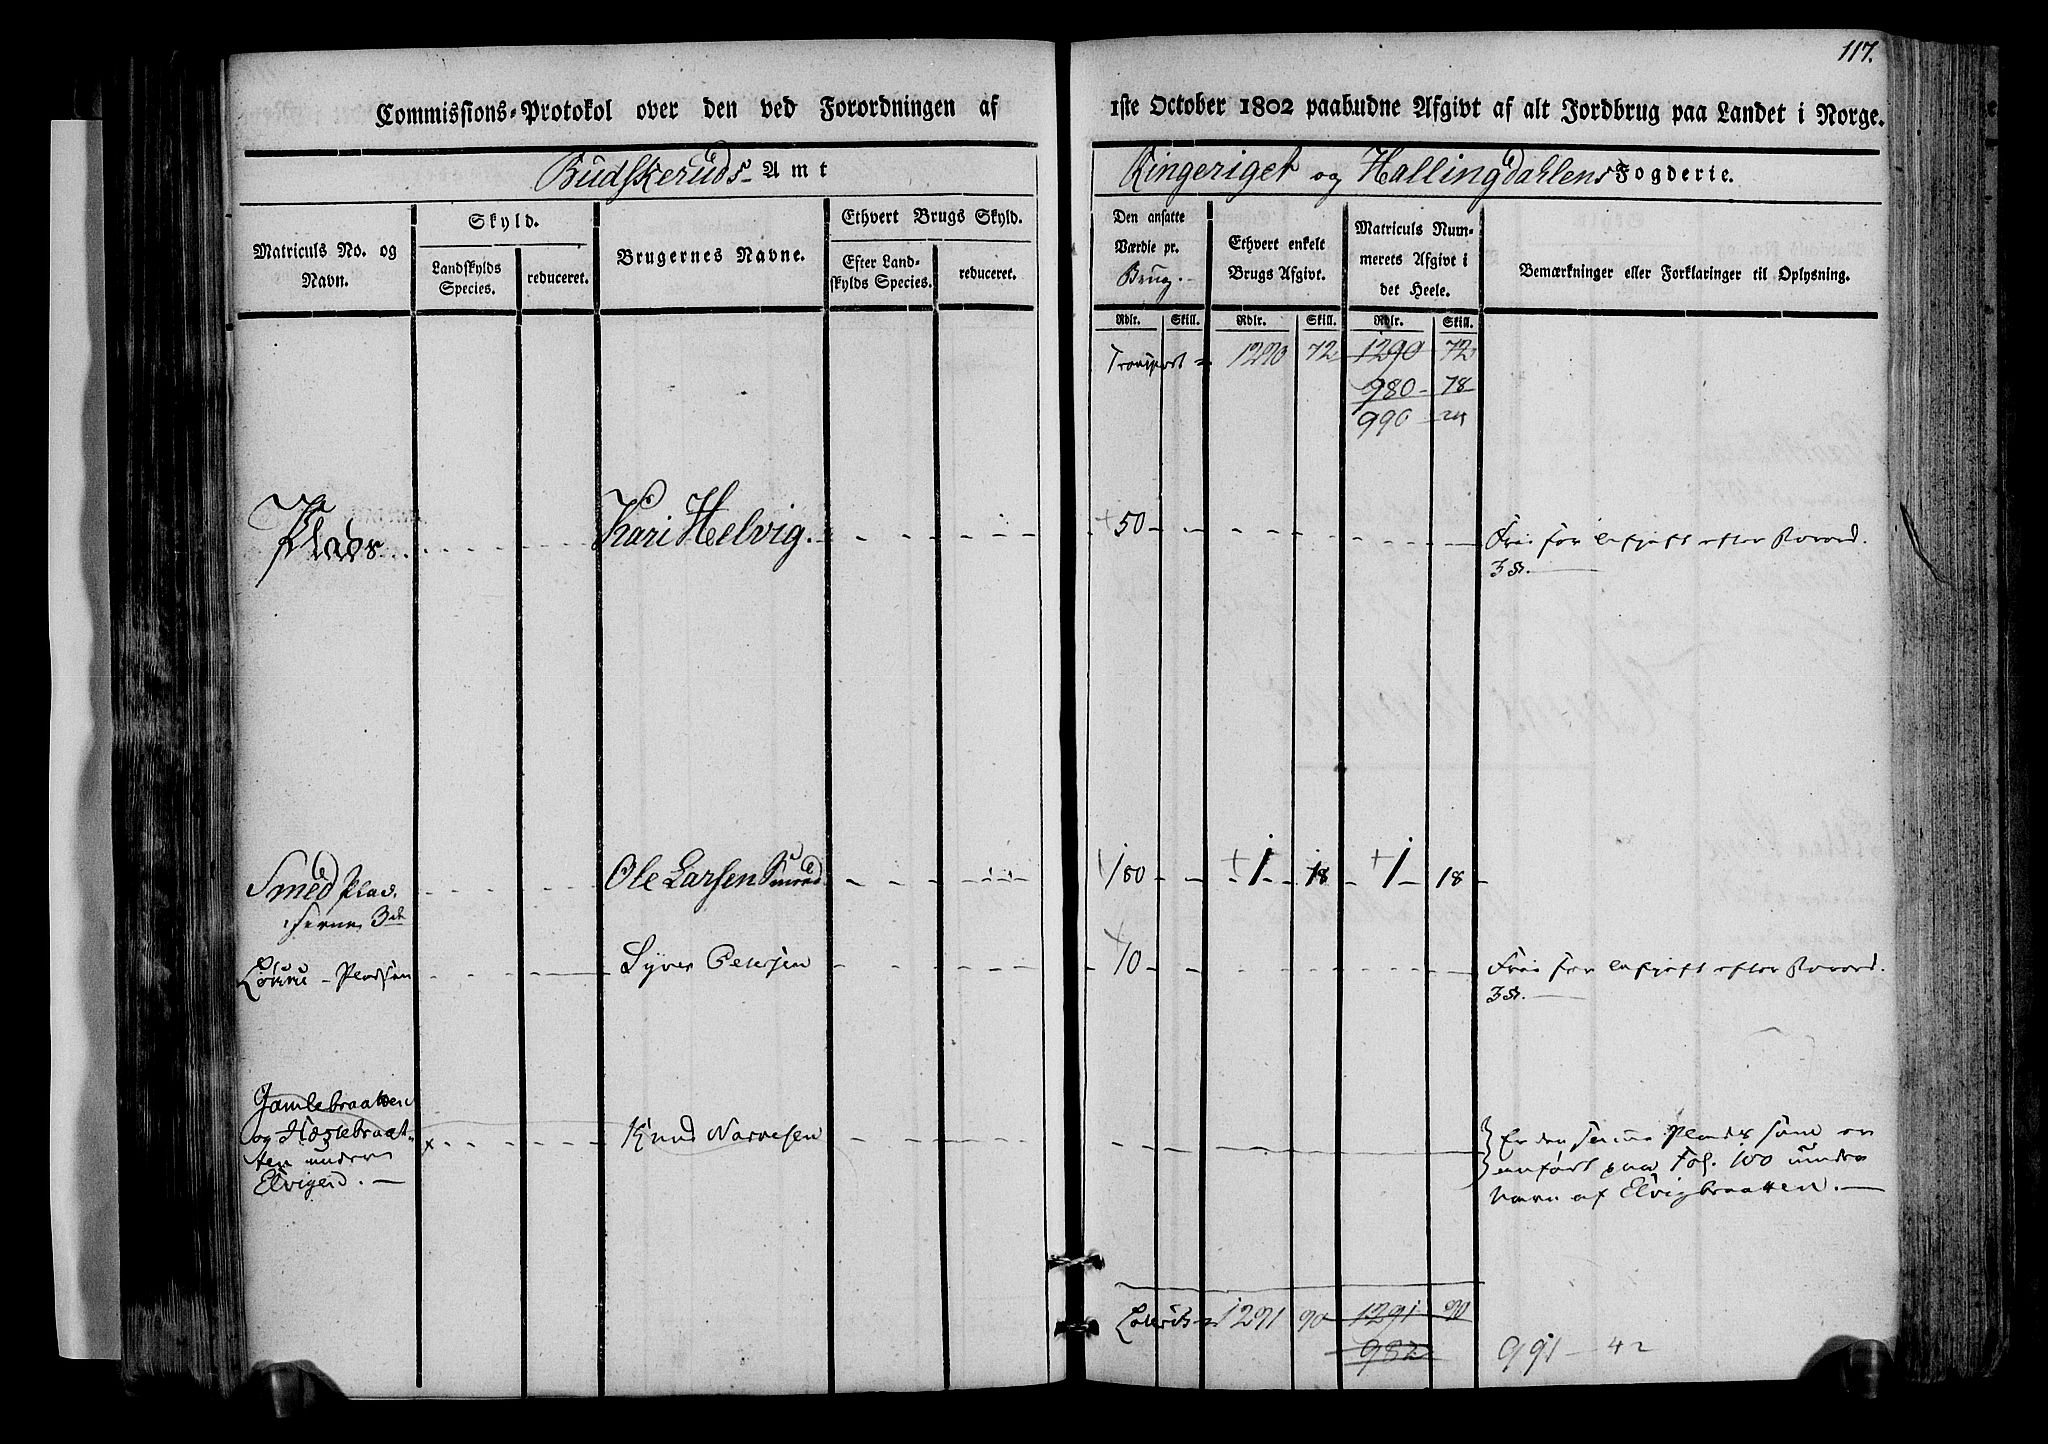 117.
Commissions-Protokol over den ved Forordningen af 1ste October 1802 paabudne Afgivt af alt Jordbrug paa Landet i Norge.
Budskeruds Amt
Ringeriget og Hallingdahlens Fogderie.
Matriculs No. og Navn.
Skyld.
Landskylds Species.
reduceret.
Brugernes Navne.
Ethvert Brugs Skyld.
Efter Landskylds Species.
reduceret.
Den ansatte Værdie pr. Brug.
Ethvert enkelt Brugs Afgivt.
Matriculs Nummerets Afgivt i det Heele.
Bemærkninger eller Forklaringer til Oplysning.
Rdlr. Skill. Rdlr. Skill. Rdlr. Skill.
Transport 1290 72 1290 72
980 - 78
990 - 24
Plads Kari Helvig. 50 Frie for Afgift efter Forord.
3 §.
Smed Plad- Ole Larsen 180 1 18 1 18
serne 3de
Pladsen Syver Petersen 10 Frie for Afgift efter Forord.
3 §.
Gamlebraatten
og Hæstebraat-
ten under
Elvigen.
Knud Narvesen
Er den samme Plads som er
anført paa Fol. 100 under
Navn af Elvigbraatten.
Lateris 1291 90 1291 90
982
991 - 42